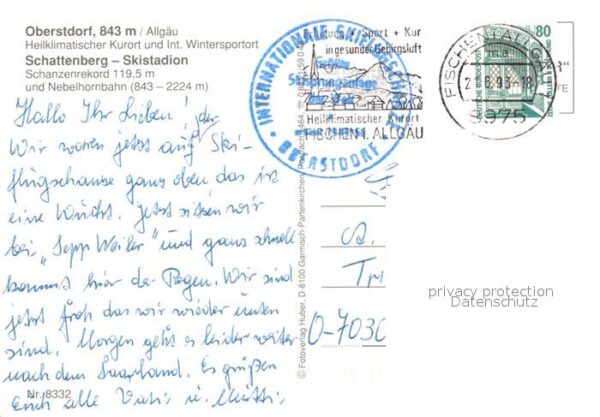 Oberstdorf, 843 m / Allgäu
Heilklimatischer Kurort und Int. Wintersportort
Schattenberg – Skistadion
Schanzenrekord 119,5 m
und Nebelhornbahn (843 – 2224 m)
Hallo Ihr Lieben! der
Wir waren jetzt auf Ski-
flugschanse ganz oben das ist
eine Wucht. Jetzt sitzen wir
bei „Sepp Weiler" und ganz schnell
kommt hier der Regen. Wir sind
jetzt froh das wir wieder unten
sind. Morgen geht es leider weiter
nach dem Saarland. Es grüßen
euch alle Vati u. Mutti.
Nr. 8332
© Fotoverlag Huber, D 8100 Garmisch-Partenkirchen
INTERNATIONALE
OBERSTDORF
Erholung + Sport + Kur
in gesunder Gebirgsluft
Heilklimatischer Kurort
FISCHEN I. ALLGÄU
FISCHEN I. ALLGÄU
8975
80
DEUTSCHE BUNDESPOST
O-7030
privacy protection
Datenschutz